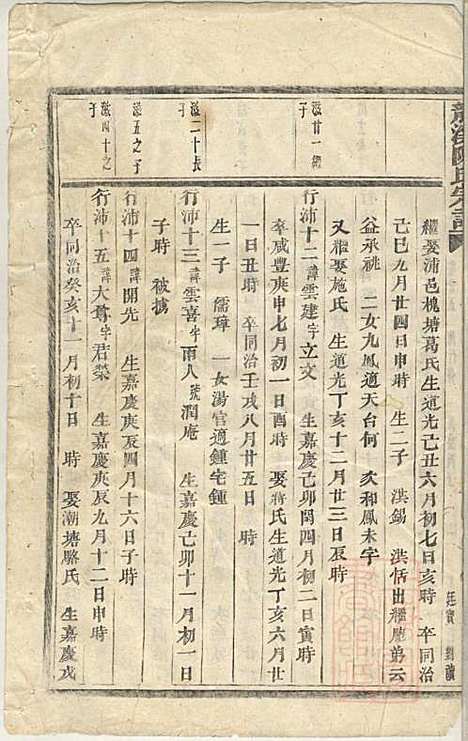 龍溪陳氏宗譜
繼娶浦邑槐塘葛氏生道光己丑六月初七日亥時 卒同治
己巳九月廿四日申時 生二子 洪錫 洪恬出繼胞弟云
益承祧 二女九鳳適天台何 次和鳳未字
又繼娶施氏 生道光丁亥十二月廿三日辰時
滋廿一繼子
行沛十二諱雲建字立文 生嘉慶己卯閏四月初二日寅時
卒咸豐庚申七月初一日酉時 娶蔣氏生道光丁亥六月廿
一日丑時 卒同治壬戌八月廿五日 時
生一子 儒璋 一女湯官適鍾宅鍾
滋二十長子
行沛十三諱雲喜字雨人號潤庵 生嘉慶己卯十一月初一日
子時 被擄
滋五之子
行沛十四諱開先 生嘉慶庚辰四月十六日子時
滋四十之子
行沛十五諱大尊字君榮 生嘉慶庚辰九月十二日申時
卒同治癸亥十一月初十日 時 娶潮塘駱氏 生嘉慶戊